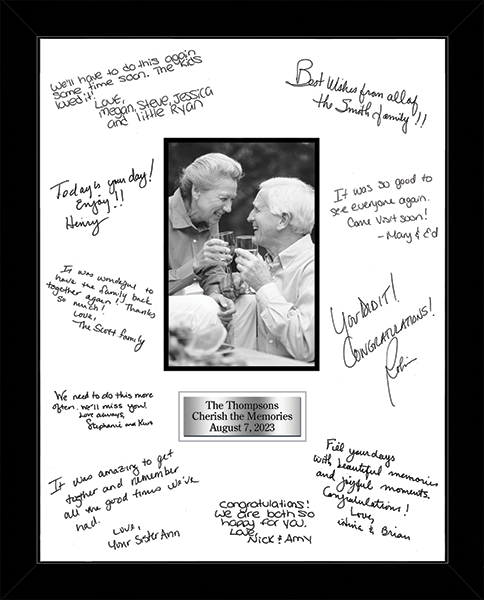 We'll have to do this again
some time soon. The kids
loved it!
Love,
Megan, Steve, Jessica
and little Ryan
Best Wishes from all of
the Smith family!!
Today is your day!
Enjoy!!
Henry
It was so good to
see everyone again.
Come visit soon!
- Mary & Ed
It was wonderful to
have the family back
together again! Thanks
so much!
Love,
The Scott Family
You Did It!
Congratulations!
Robin
We need to do this more
often. We'll miss you!
Love always,
Stephanie and Kurt
The Thompsons
Cherish the Memories
August 7, 2023
It was amazing to get
together and remember
all the good times we've
had.
Love,
Your Sister Ann
Congratulations!
We are both so
happy for you.
Love,
Nick & Amy
Fill your days
with beautiful memories
and joyful moments.
Congratulations!
Love,
& Brian